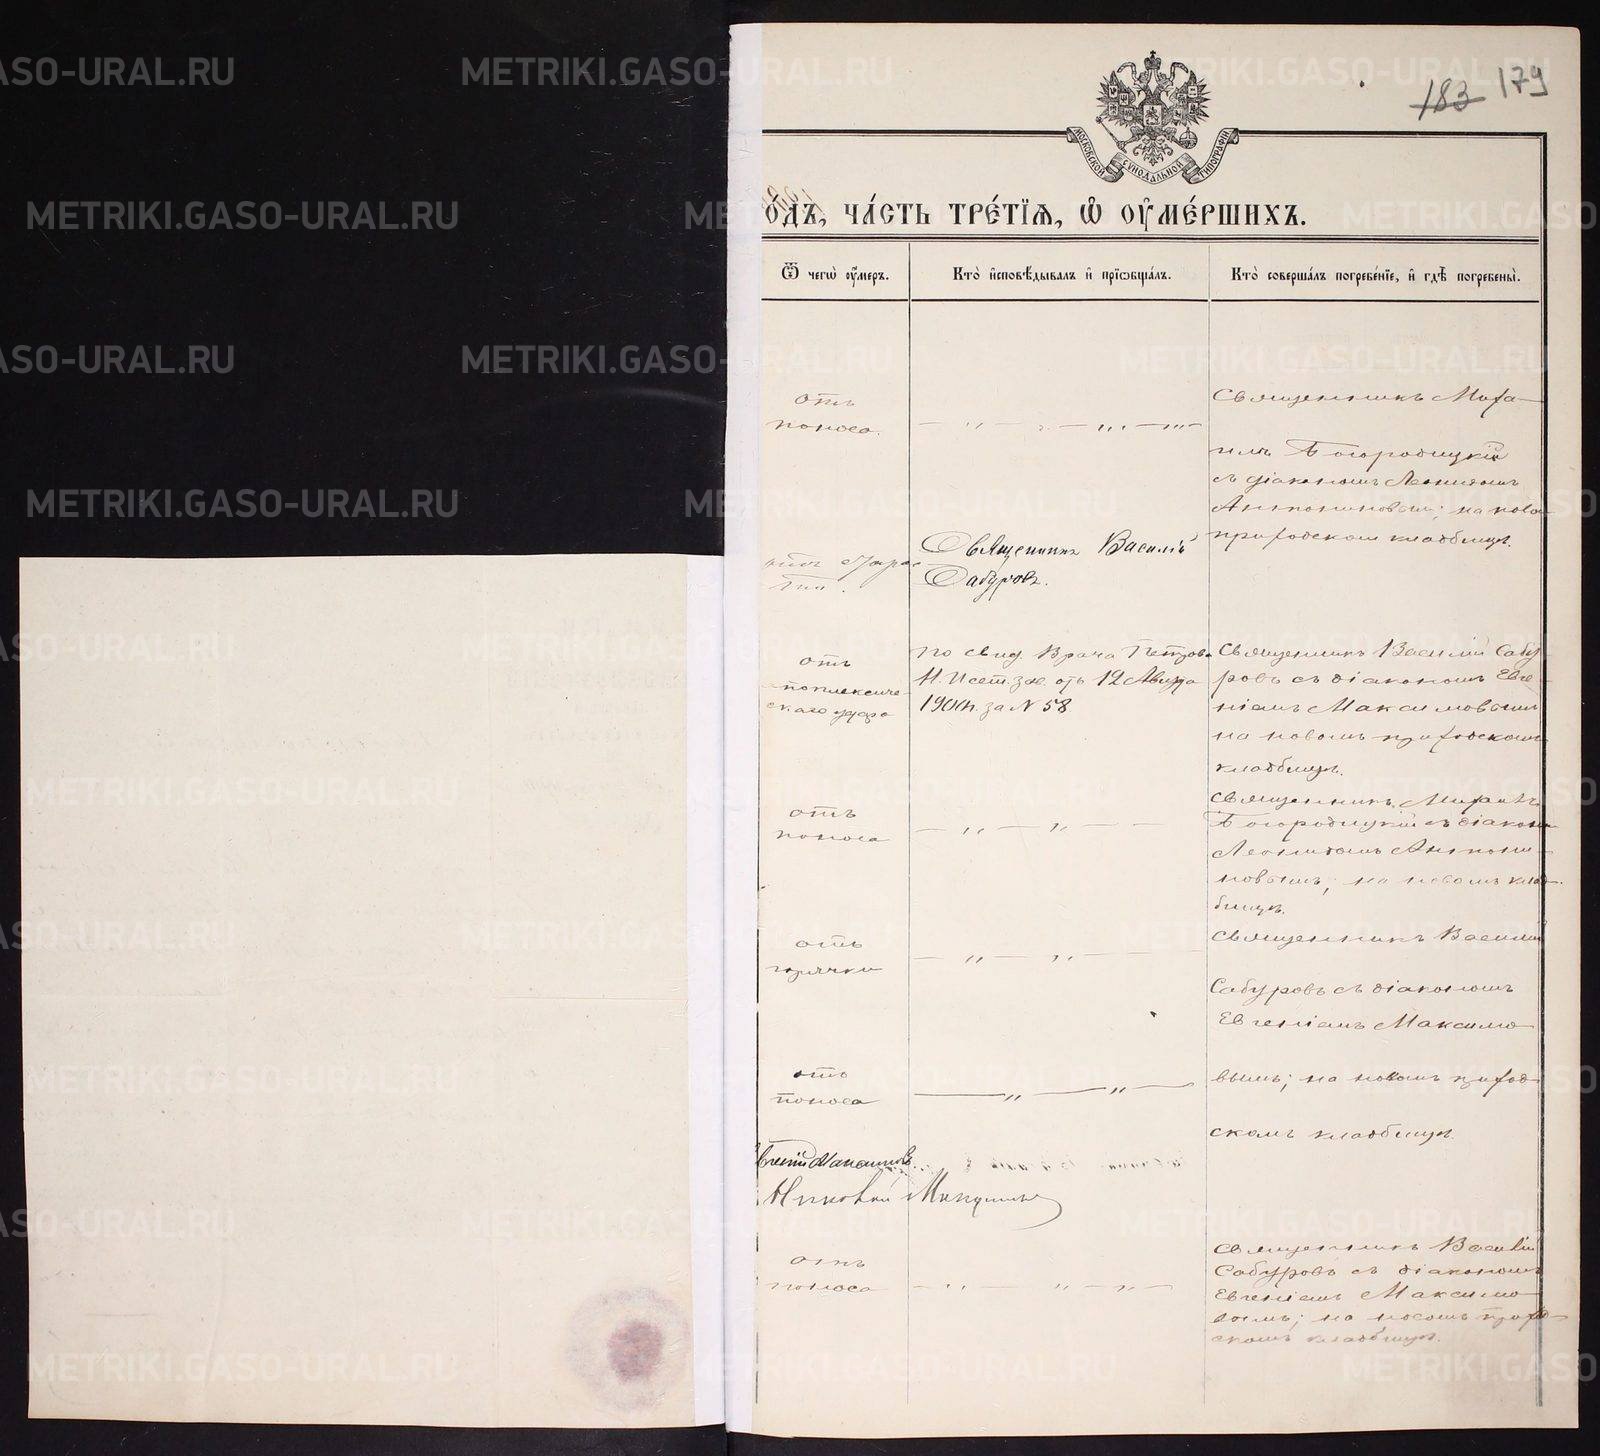 183 179
МОСКОВСКОЙ СУНОДАЛЬНОЙ ТИПОГРАФІИ
ОДЪ, ЧА́СТЬ ТРЕ́ТІѦ, Ѡ ОУ҆МЕ́РШИХЪ.
Ѿ чегѡ̀ оу҆́меръ.
Кто̀ и҆сповѣ́дывалъ и҆ прїѡбща́лъ.
Кто̀ соверша́лъ погребе́нїе, и҆ гдѣ̀ погребены̀.
отъ
поноса.
— „ — „ — „ — „ —
Священникъ Миха-
илъ Богородицкій
съ діакономъ Леонидомъ
Антониновымъ; на новом
приходском кладбищѣ.
Священникъ Василій
Сабуровъ.
отъ
апоплексиче-
скаго удара
По свид. Врача Петрова
Н. Исет. зав. отъ 12 Августа
1904 г. за № 58
Священникъ Василій Сабу-
ровъ съ діакономъ Евге-
ніемъ Максимовымъ
на новомъ приходскомъ
кладбищѣ.
отъ
поноса
— „ — „ — —
Священникъ Михаилъ
Богородицкій съ діакон
Леонидомъ Антони-
новымъ; на новомъ клад-
бищѣ.
отъ
горячки
— „ — „ — —
Священникъ Василій
Сабуровъ съ діакономъ
Евгеніемъ Максимо-
вымъ; на новомъ приход-
скомъ кладбищѣ.
отъ
поноса
— „ — „ —
Евгеній Максимовъ
отъ
поноса
— „ — „ — „ —
Священникъ Василій
Сабуровъ съ діакономъ
Евгеніемъ Максимо-
вымъ; на новомъ прихо-
дскомъ кладбищѣ.
METRIKI.GASO-URAL.RU